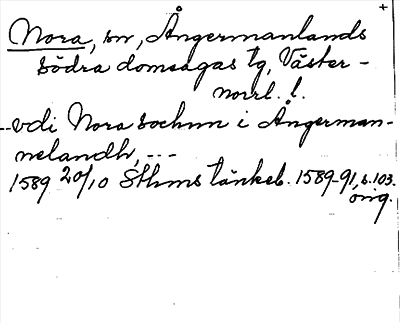 +
Nora, sn, Ångermanlands
södra domsagas tg, Väster-
norrl. l.
--vdi Nora sochnn i Ångerman-
nelandh, ---
1589 20/10 Sthms tänkeb. 1589-91, s. 103.
orig.